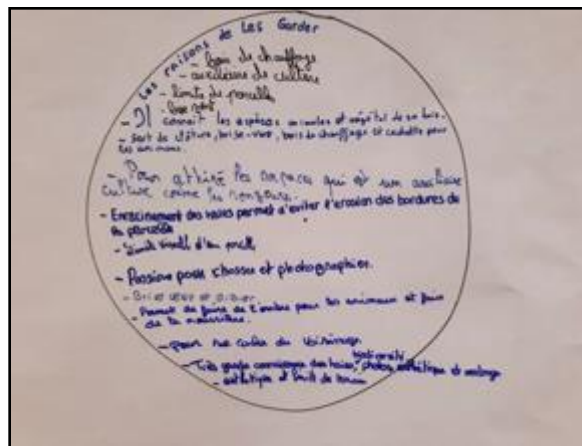 Les raisons de Les Garder
- bois de chauffage
- auxiliaire de culture
- limite de parcelle
- brise vent
- Il connait les espèces animales et végétal de son bois.
- Sert de clôture, brise-vent, bois de chauffage et cachette pour les animaux.
- Pour attiré les espaces qui est un auxiliaire
culture comme les rongeurs.
- Enracinement des haies permet d'éviter l'érosion des bordures de
la parcelle
- limite visuell d'un parcelle
- Passion pour chasser et photographier.
- Brise vent et gibier.
- Permet de faire de l'ombre pour les animaux et faire
de la nourriture.
- pour se cacher du voisinage
- Très grande connaissance des haies, biodiversité, photos, esthétique et
- esthétique et limite de terrain